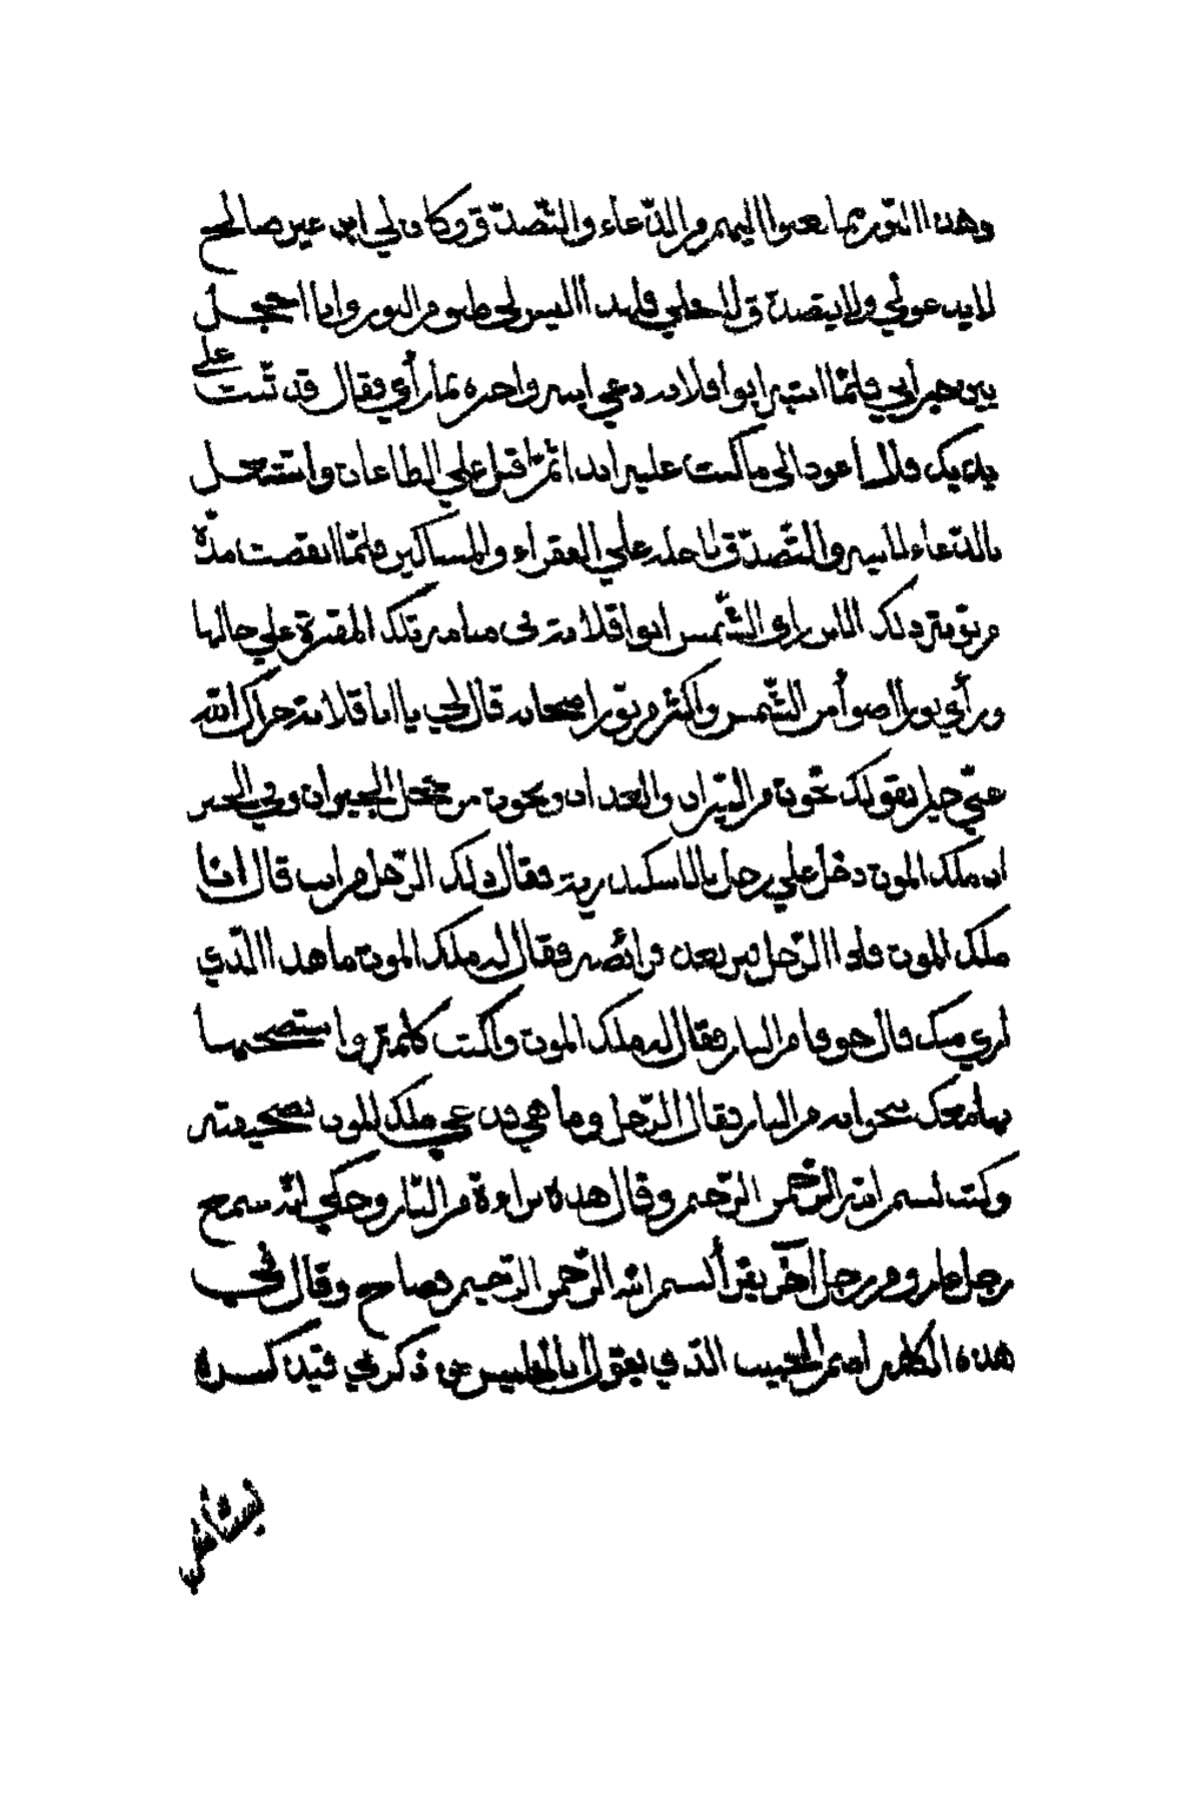 وهذا النور مما بعثوا اليهم من الدعاء والتصدق وكان لي ابن غير صالح
لا يدعو لي ولا يتصدق لاجلي فلهذا ليس لي طبق من النور وانا اخجل
بين جيراني فلما انتبه ابو قلابة دعي ابنه واخبره بما رأي فقال قد تبت علي
يديك فلا اعود الى ما كنت عليه ابدا ثم اقبل علي الطاعات واشتغل
بالدعاء لابيه والتصدق لاجله علي الفقراء والمساكين فلما انقضت مدة
من توبته ذلك الابن رأى الشمس ابو قلابة في منامه تلك المقبرة علي حالها
ورأي نورا اضوأ من الشمس واكثر من نور اصحابه قال لي يا ابا قلابة جزاك الله
عني خيرا بقولك نجوت من النيران والعذاب ونجوت من خجل الجيران وفي الخبر
ان ملك الموت دخل علي رجل بالاسكندرية فقال ذلك الرجل من انت قال انا
ملك الموت فاذا الرجل يرتعد فرائصه فقال له ملك الموت ما هذا الذي
اري منك قال خوفا من النار فقال له ملك الموت واكتب كلمة واستصحبها
بها معك تنجوا به من النار فقال الرجل وما هي فدعي ملك الموت بصحيفة
وكتب بسم الله الرحمن الرحيم وقال هذه براءة من النار وحكي انه سمع
رجل عارف من رجل آخر يقرأ بسم الله الرحمن الرحيم فصاح وقال نحب
هذه الكلام اسم الحبيب الذي يقول ابا بلعليس عن ذكر في قيد كسرة